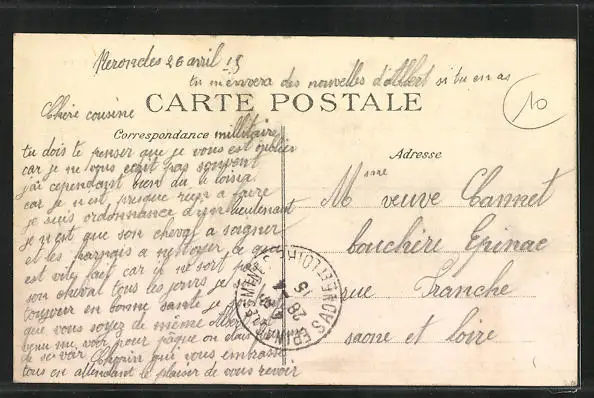 Neronde 26 avril 15
tu m'envera des nouvelles d'Albert si tu en as
10
CARTE POSTALE
Chère cousine
Correspondance millitaire
tu dois te penser que je vous est oublier
car je ne vous ecrit pas souvent
j'ai cependant bien du te loisir
car je n'est presque rien a faire
je suis ordonnance d'un lieutenant
Je n'est que son cheval a soigner
et les harnais a nettoyer ce qui
est vite fait car je ne sort pas
son cheval tous les jours je suis
toujour en bonne santé je
que vous soyez de même Albert est
venu me voir pour pâque on dois
de se voir qui vous embrasse
tous en attendant le plaisir de vous revoir
Adresse
Mme veuve Cannet
bouchère Epinac
rue Franche
saone et loire
EPINAC-LES-MINES
SAONE-ET-LOIRE
15
28